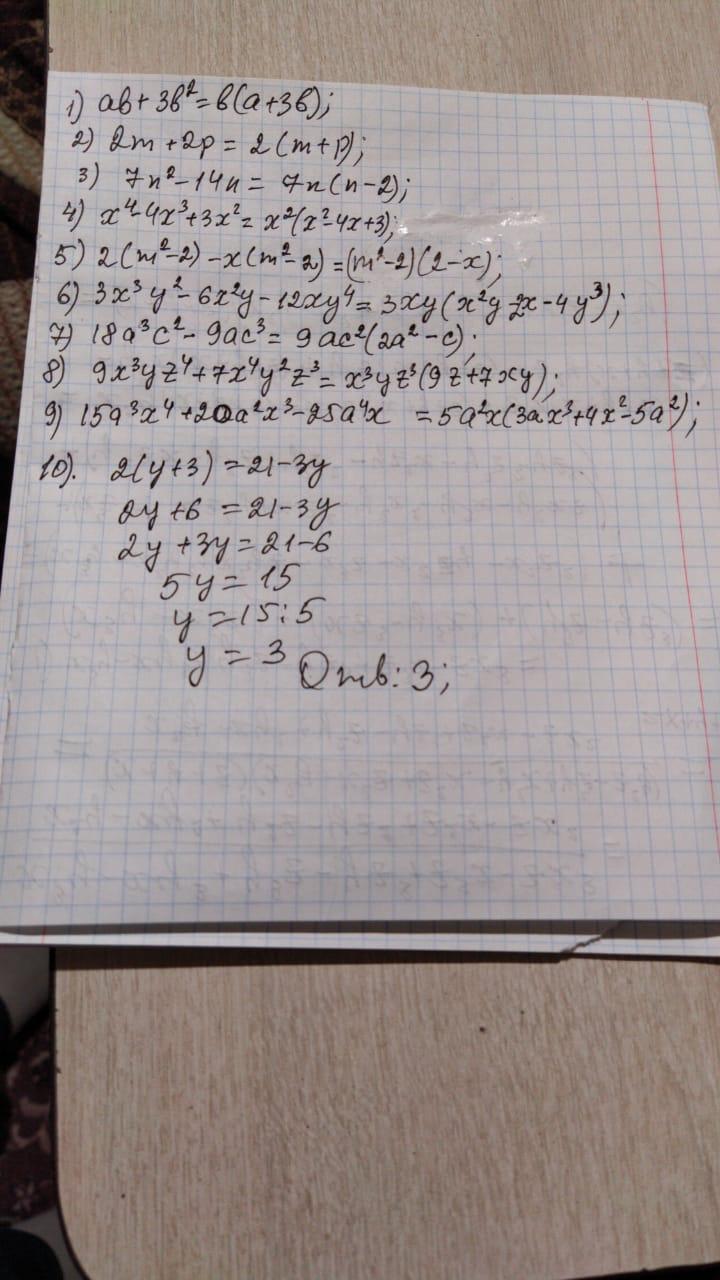 1) ab + 3b² = b(a+3b);
2) 2m + 2p = 2(m+p);
3) 7n² - 14n = 7n(n-2);
4) x⁴-4x³+3x² = x²(x²-4x+3);
5) 2(m²-2) - x(m²-2) = (m²-2)(2-x);
6) 3x³y² - 6x²y - 12xy⁴ = 3xy(x²y-2x-4y³);
7) 18a³c² - 9ac³ = 9ac²(2a²-c);
8) 9x³yz⁴+7x⁴y²z³ = x³yz³(9z+7xy);
9) 15a³x⁴+20a²x³-25a⁴x = 5a²x(3ax³+4x²-5a²);
10). 2(y+3) = 21-3y
2y+6 = 21-3y
2y+3y = 21-6
5y = 15
y = 15:5
y = 3 Отв: 3;